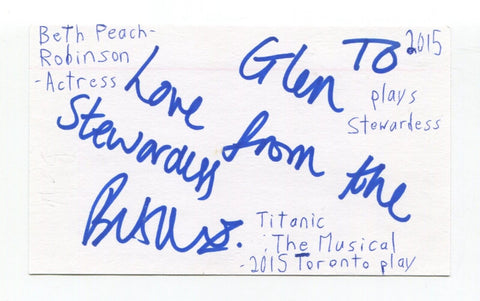 Beth Peach-
Robinson
-Actress
2015
plays
Stewardess
To
Glen
Love from the
Stewardess
Titanic
The Musical
-2015 Toronto play